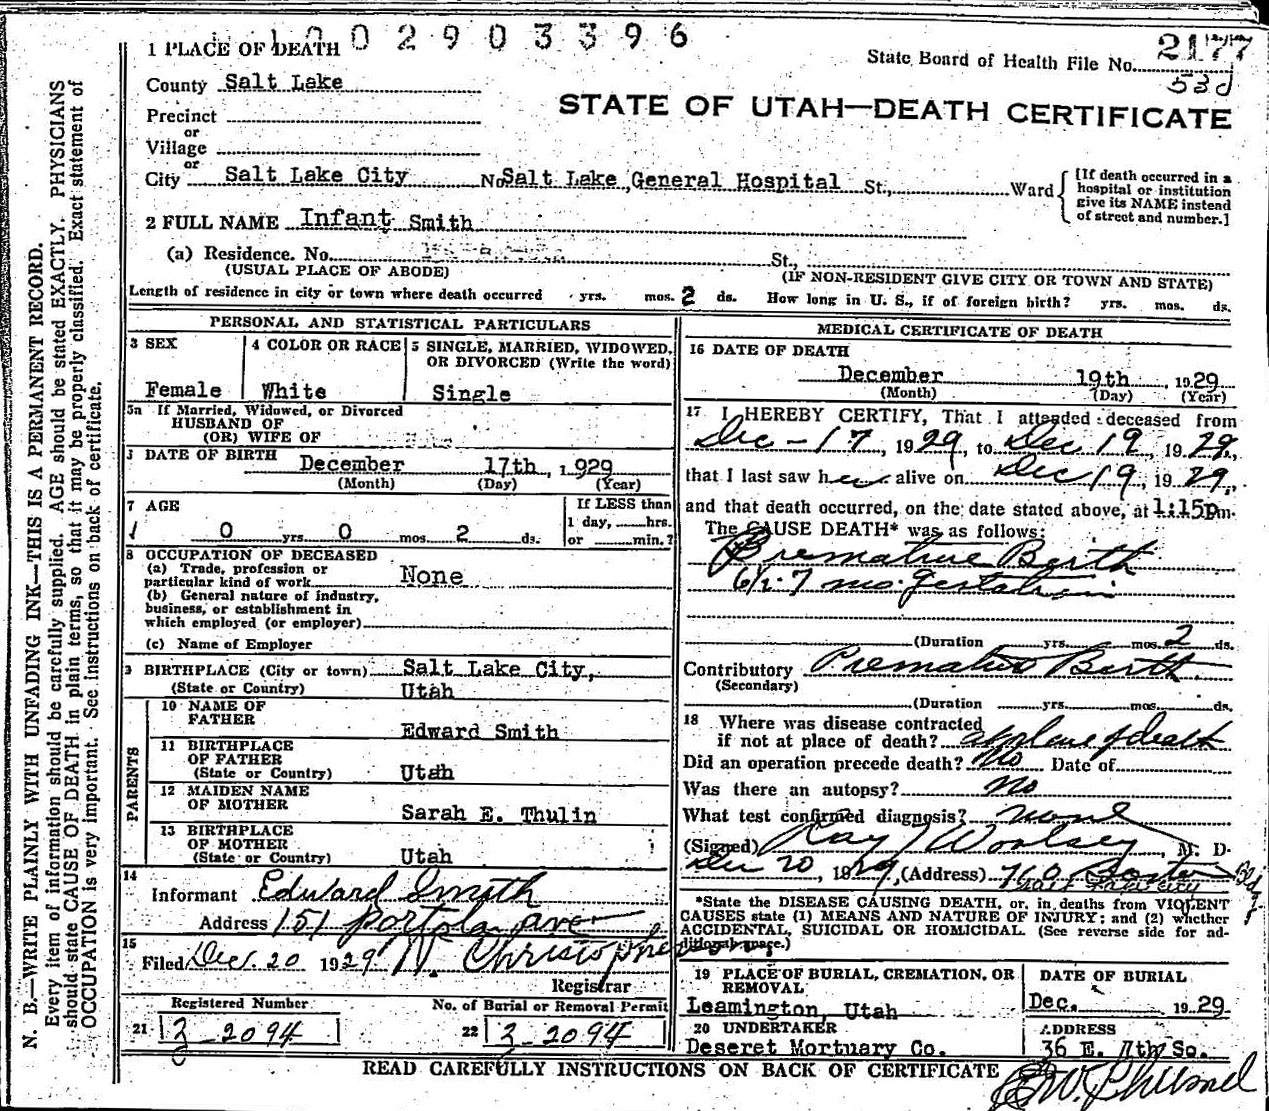 1002903396
1 PLACE OF DEATH
State Board of Health File No. 2177
53d
County Salt Lake
STATE OF UTAH—DEATH CERTIFICATE
Precinct
or
Village
or
City Salt Lake City No Salt Lake General Hospital St., Ward
[If death occurred in a
hospital or institution
give its NAME instead
of street and number.]
2 FULL NAME Infant Smith
(a) Residence. No. St.,
(USUAL PLACE OF ABODE) (IF NON-RESIDENT GIVE CITY OR TOWN AND STATE)
Length of residence in city or town where death occurred yrs. mos. 2 ds. How long in U. S., if of foreign birth? yrs. mos. ds.
PERSONAL AND STATISTICAL PARTICULARS
3 SEX 4 COLOR OR RACE 5 SINGLE, MARRIED, WIDOWED,
OR DIVORCED (Write the word)
Female White Single
5a If Married, Widowed, or Divorced
HUSBAND OF
(OR) WIFE OF
DATE OF BIRTH December 17th, 1929
(Month) (Day) (Year)
7 AGE If LESS than
1 day, hrs.
or min.?
0 yrs. 0 mos. 2 ds.
8 OCCUPATION OF DECEASED
(a) Trade, profession or
particular kind of work None
(b) General nature of industry,
business, or establishment in
which employed (or employer)
(c) Name of Employer
9 BIRTHPLACE (City or town) Salt Lake City,
(State or Country) Utah
PARENTS
10 NAME OF
FATHER Edward Smith
11 BIRTHPLACE
OF FATHER
(State or Country) Utah
12 MAIDEN NAME
OF MOTHER Sarah E. Thulin
13 BIRTHPLACE
OF MOTHER
(State or Country) Utah
14
Informant Edward Smith
Address 151 Portola ave
15
Filed Dec. 20 1929 Christopherson
Registrar
Registered Number No. of Burial or Removal Permit
21 3 2094 22 3 2094
MEDICAL CERTIFICATE OF DEATH
16 DATE OF DEATH
December 19th, 1929
(Month) (Day) (Year)
17 I HEREBY CERTIFY, That I attended deceased from
Dec - 17, 1929, to Dec 19, 1929,
that I last saw her alive on Dec 19, 1929,
and that death occurred, on the date stated above, at 1:15pm.
The CAUSE DEATH* was as follows:
Premature Berth
6½-7 mo. gestation
(Duration yrs. mos. 2 ds.
Contributory Premature Berth
(Secondary)
(Duration yrs. mos. ds.
18 Where was disease contracted
if not at place of death? at place of death
Did an operation precede death? No Date of
Was there an autopsy? No
What test confirmed diagnosis? none
(Signed) Ray T Woolsey, M. D.
Dec 20, 1929, (Address) 760 Boston Bldg.
Salt Lake City
*State the DISEASE CAUSING DEATH, or, in deaths from VIOLENT
CAUSES state (1) MEANS AND NATURE OF INJURY; and (2) whether
ACCIDENTAL, SUICIDAL OR HOMICIDAL. (See reverse side for ad-
ditional space.)
19 PLACE OF BURIAL, CREMATION, OR
REMOVAL
Leamington, Utah
DATE OF BURIAL
Dec. 1929
20 UNDERTAKER
Deseret Mortuary Co.
ADDRESS
36 E. 7th So.
READ CAREFULLY INSTRUCTIONS ON BACK OF CERTIFICATE
N. B.—WRITE PLAINLY WITH UNFADING INK—THIS IS A PERMANENT RECORD.
Every item of information should be carefully supplied. AGE should be stated EXACTLY. PHYSICIANS
should state CAUSE OF DEATH in plain terms, so that it may be properly classified. Exact statement of
OCCUPATION is very important. See instructions on back of certificate.